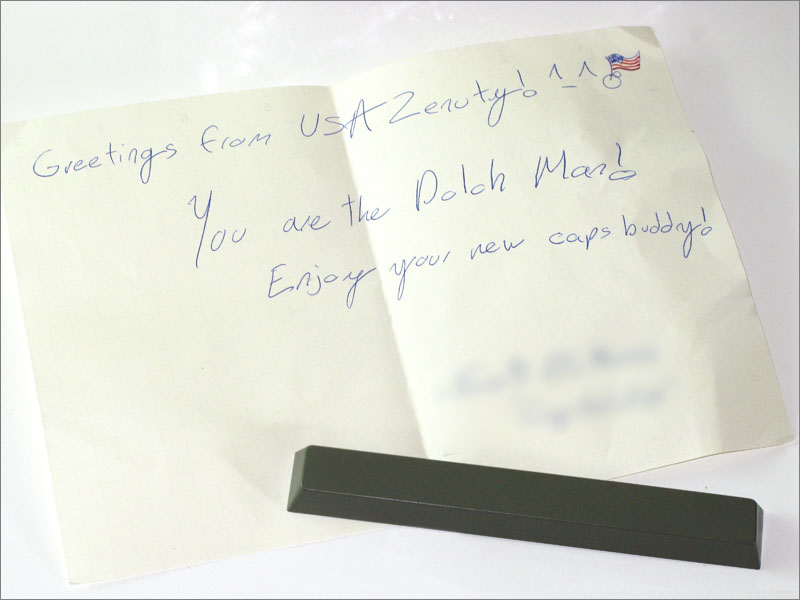 Greetings from USA Zenuty! ^_^
You are the Dolch Man!
Enjoy your new caps buddy!